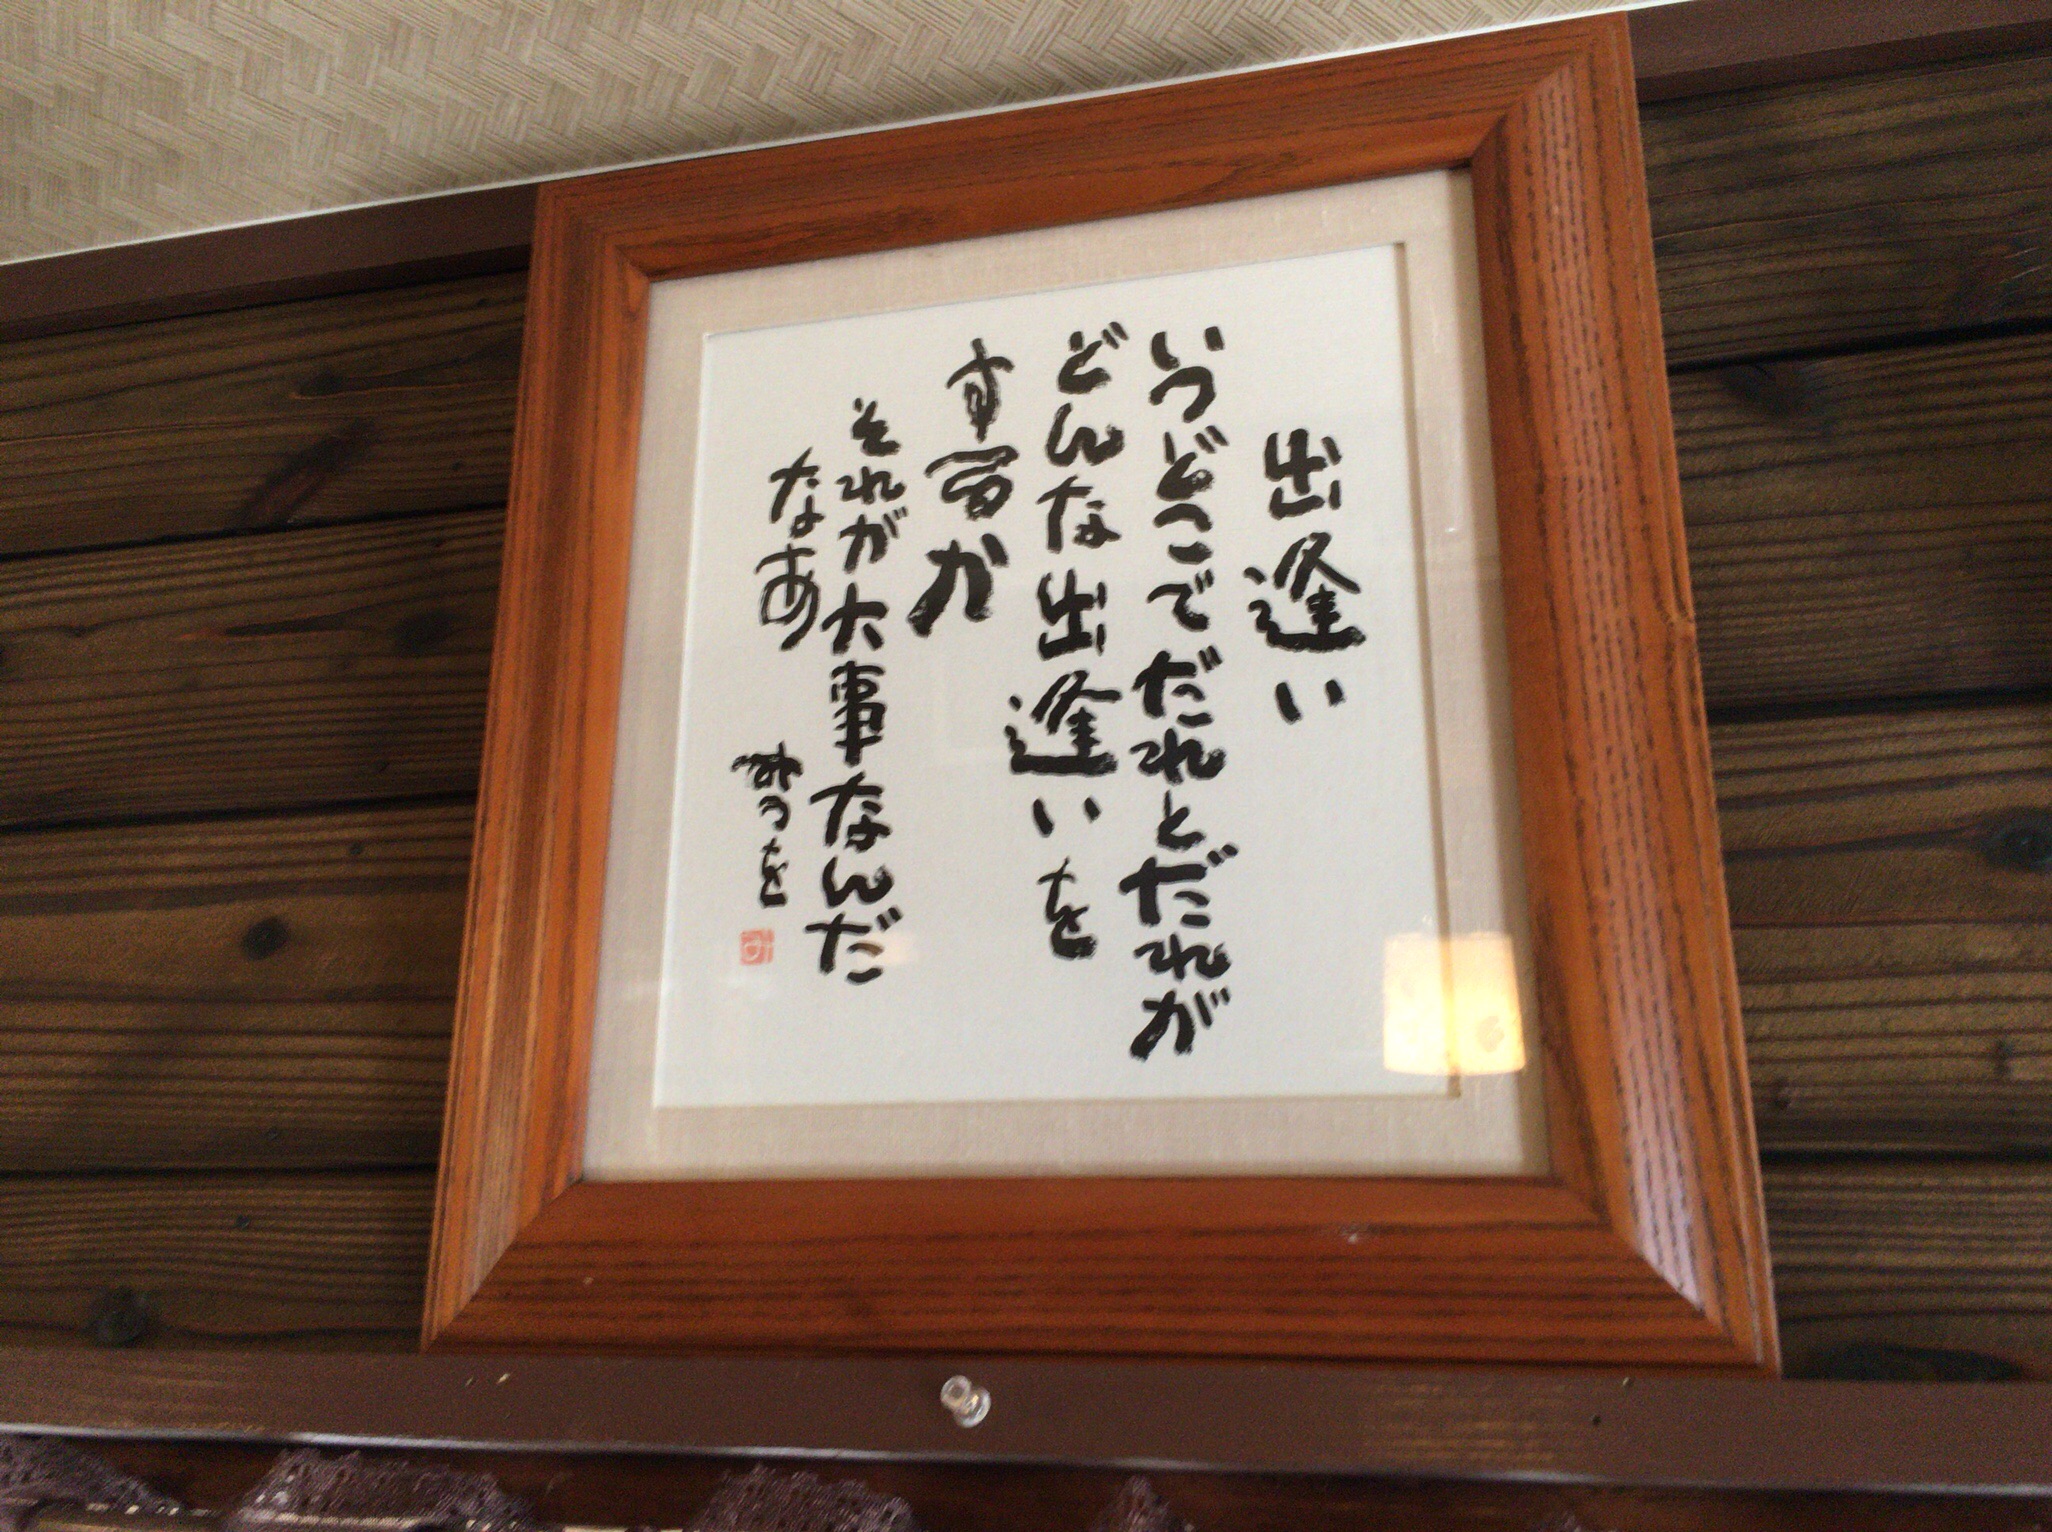 出逢い
いつどこでだれとだれが
どんな出逢いを
するか
それが大事なんだ
なあ
みつを
み